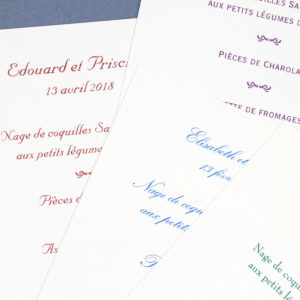 Edouard et Prisc
13 avril 2018
Nage de coquilles Sa
aux petits légume
Pièces d
As
COQUILLES SA
AUX PETITS LÉGUMES
PIÈCES DE CHAROLA
TE DE FROMAGES
Elisabeth et
13 fév
Nage de coqu
aux petits
Nage de coq
aux petit